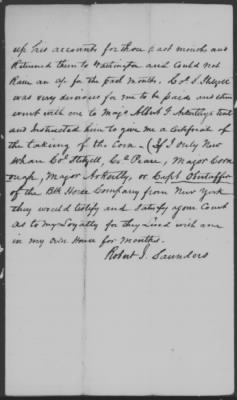 up his accounts for those past months and
Returned them to Washington and Could not
Raise an a/c for the past months. Col S. Stetzell
was very desirous for me to be paid and then
went with one to Majr Albert G. Arkently's tent
and Instructed him to give me a certificate of
the taking of the Corn. (If I only New
whare Col Stetzell, C. Pease, Major Corn
ough, Major Arkently, or Capt Obertaffer
of the Bth Horse Company from New York
they would testify and satisfy your Court
as to my Loyalty for they Lived with me
in my own House for months.
Robert J. Saunders